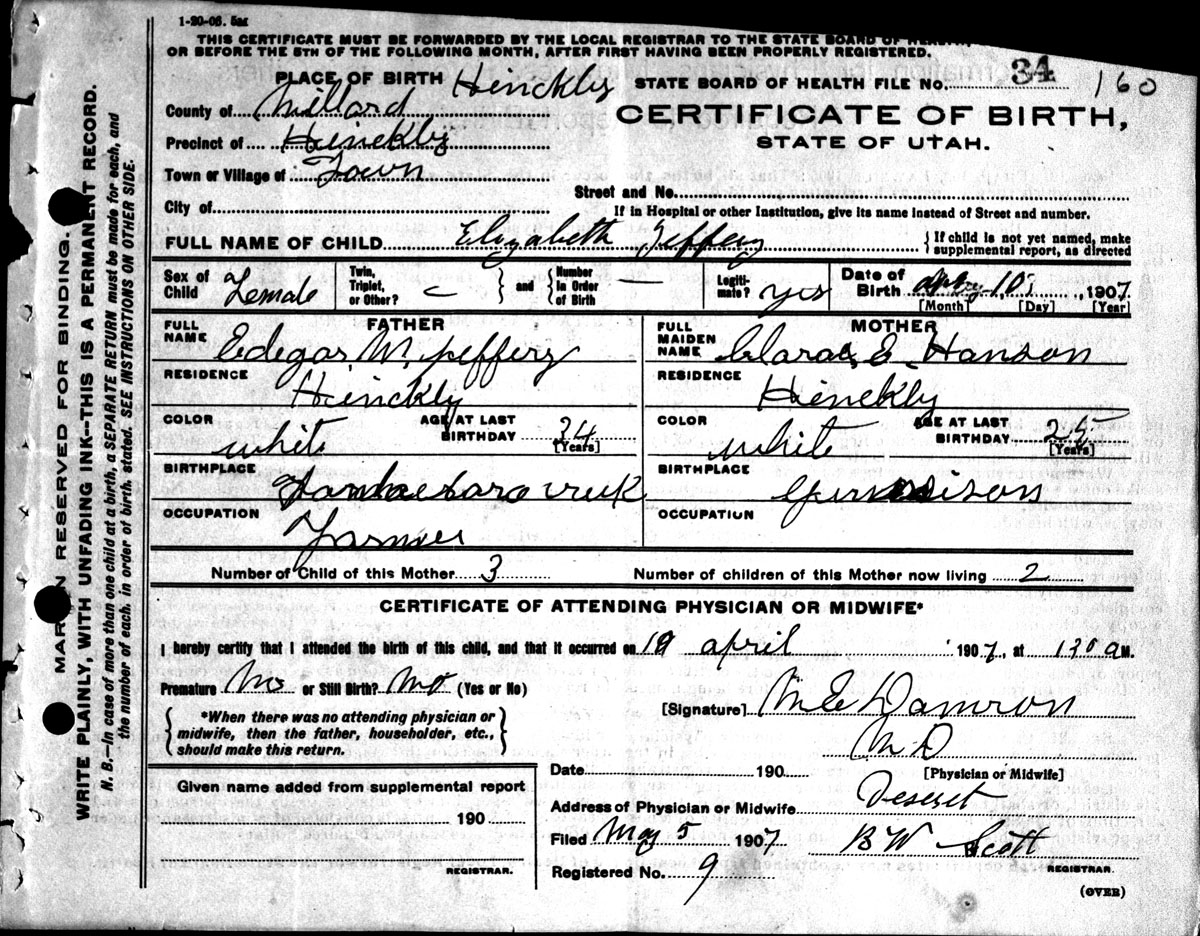 1-20-06. 5M
THIS CERTIFICATE MUST BE FORWARDED BY THE LOCAL REGISTRAR TO THE STATE BOARD OF HEALTH,
OR BEFORE THE 5TH OF THE FOLLOWING MONTH, AFTER FIRST HAVING BEEN PROPERLY REGISTERED.
PLACE OF BIRTH Hinckly
STATE BOARD OF HEALTH FILE NO. 34 160
County of Millard
CERTIFICATE OF BIRTH,
Precinct of Hinckly
STATE OF UTAH.
Town or Village of Town
Street and No.
City of
If in Hospital or other Institution, give its name instead of Street and number.
FULL NAME OF CHILD Elizabeth Jeffery
{ If child is not yet named, make supplemental report, as directed
Sex of Child Female
Twin, Triplet, or Other? –
and
Number in Order of Birth –
Legitimate? yes
Date of Birth 10, 1907
[Month] [Day] [Year]
FATHER
FULL NAME Edegar W. Jeffery
RESIDENCE Hinckly
COLOR white
AGE AT LAST BIRTHDAY 34 [Years]
BIRTHPLACE
OCCUPATION Farmer
MOTHER
FULL MAIDEN NAME Clara E. Hanson
RESIDENCE Hinckly
COLOR white
AGE AT LAST BIRTHDAY 25 [Years]
BIRTHPLACE
OCCUPATION
Number of Child of this Mother 3
Number of children of this Mother now living 2
CERTIFICATE OF ATTENDING PHYSICIAN OR MIDWIFE*
I hereby certify that I attended the birth of this child, and that it occurred on 10 april 1907, at 130 a M.
Premature No or Still Birth? No (Yes or No)
[Signature] M E Damron
{ *When there was no attending physician or midwife, then the father, householder, etc., should make this return. }
M D
[Physician or Midwife]
Date 190
Given name added from supplemental report
190
Address of Physician or Midwife Deseret
Filed May 5 1907 B W Scott
REGISTRAR.
REGISTRAR.
Registered No. 9
(OVER)
MARGIN RESERVED FOR BINDING.
WRITE PLAINLY, WITH UNFADING INK--THIS IS A PERMANENT RECORD.
N. B.—In case of more than one child at a birth, a SEPARATE RETURN must be made for each, and
the number of each, in order of birth, stated. SEE INSTRUCTIONS ON OTHER SIDE.